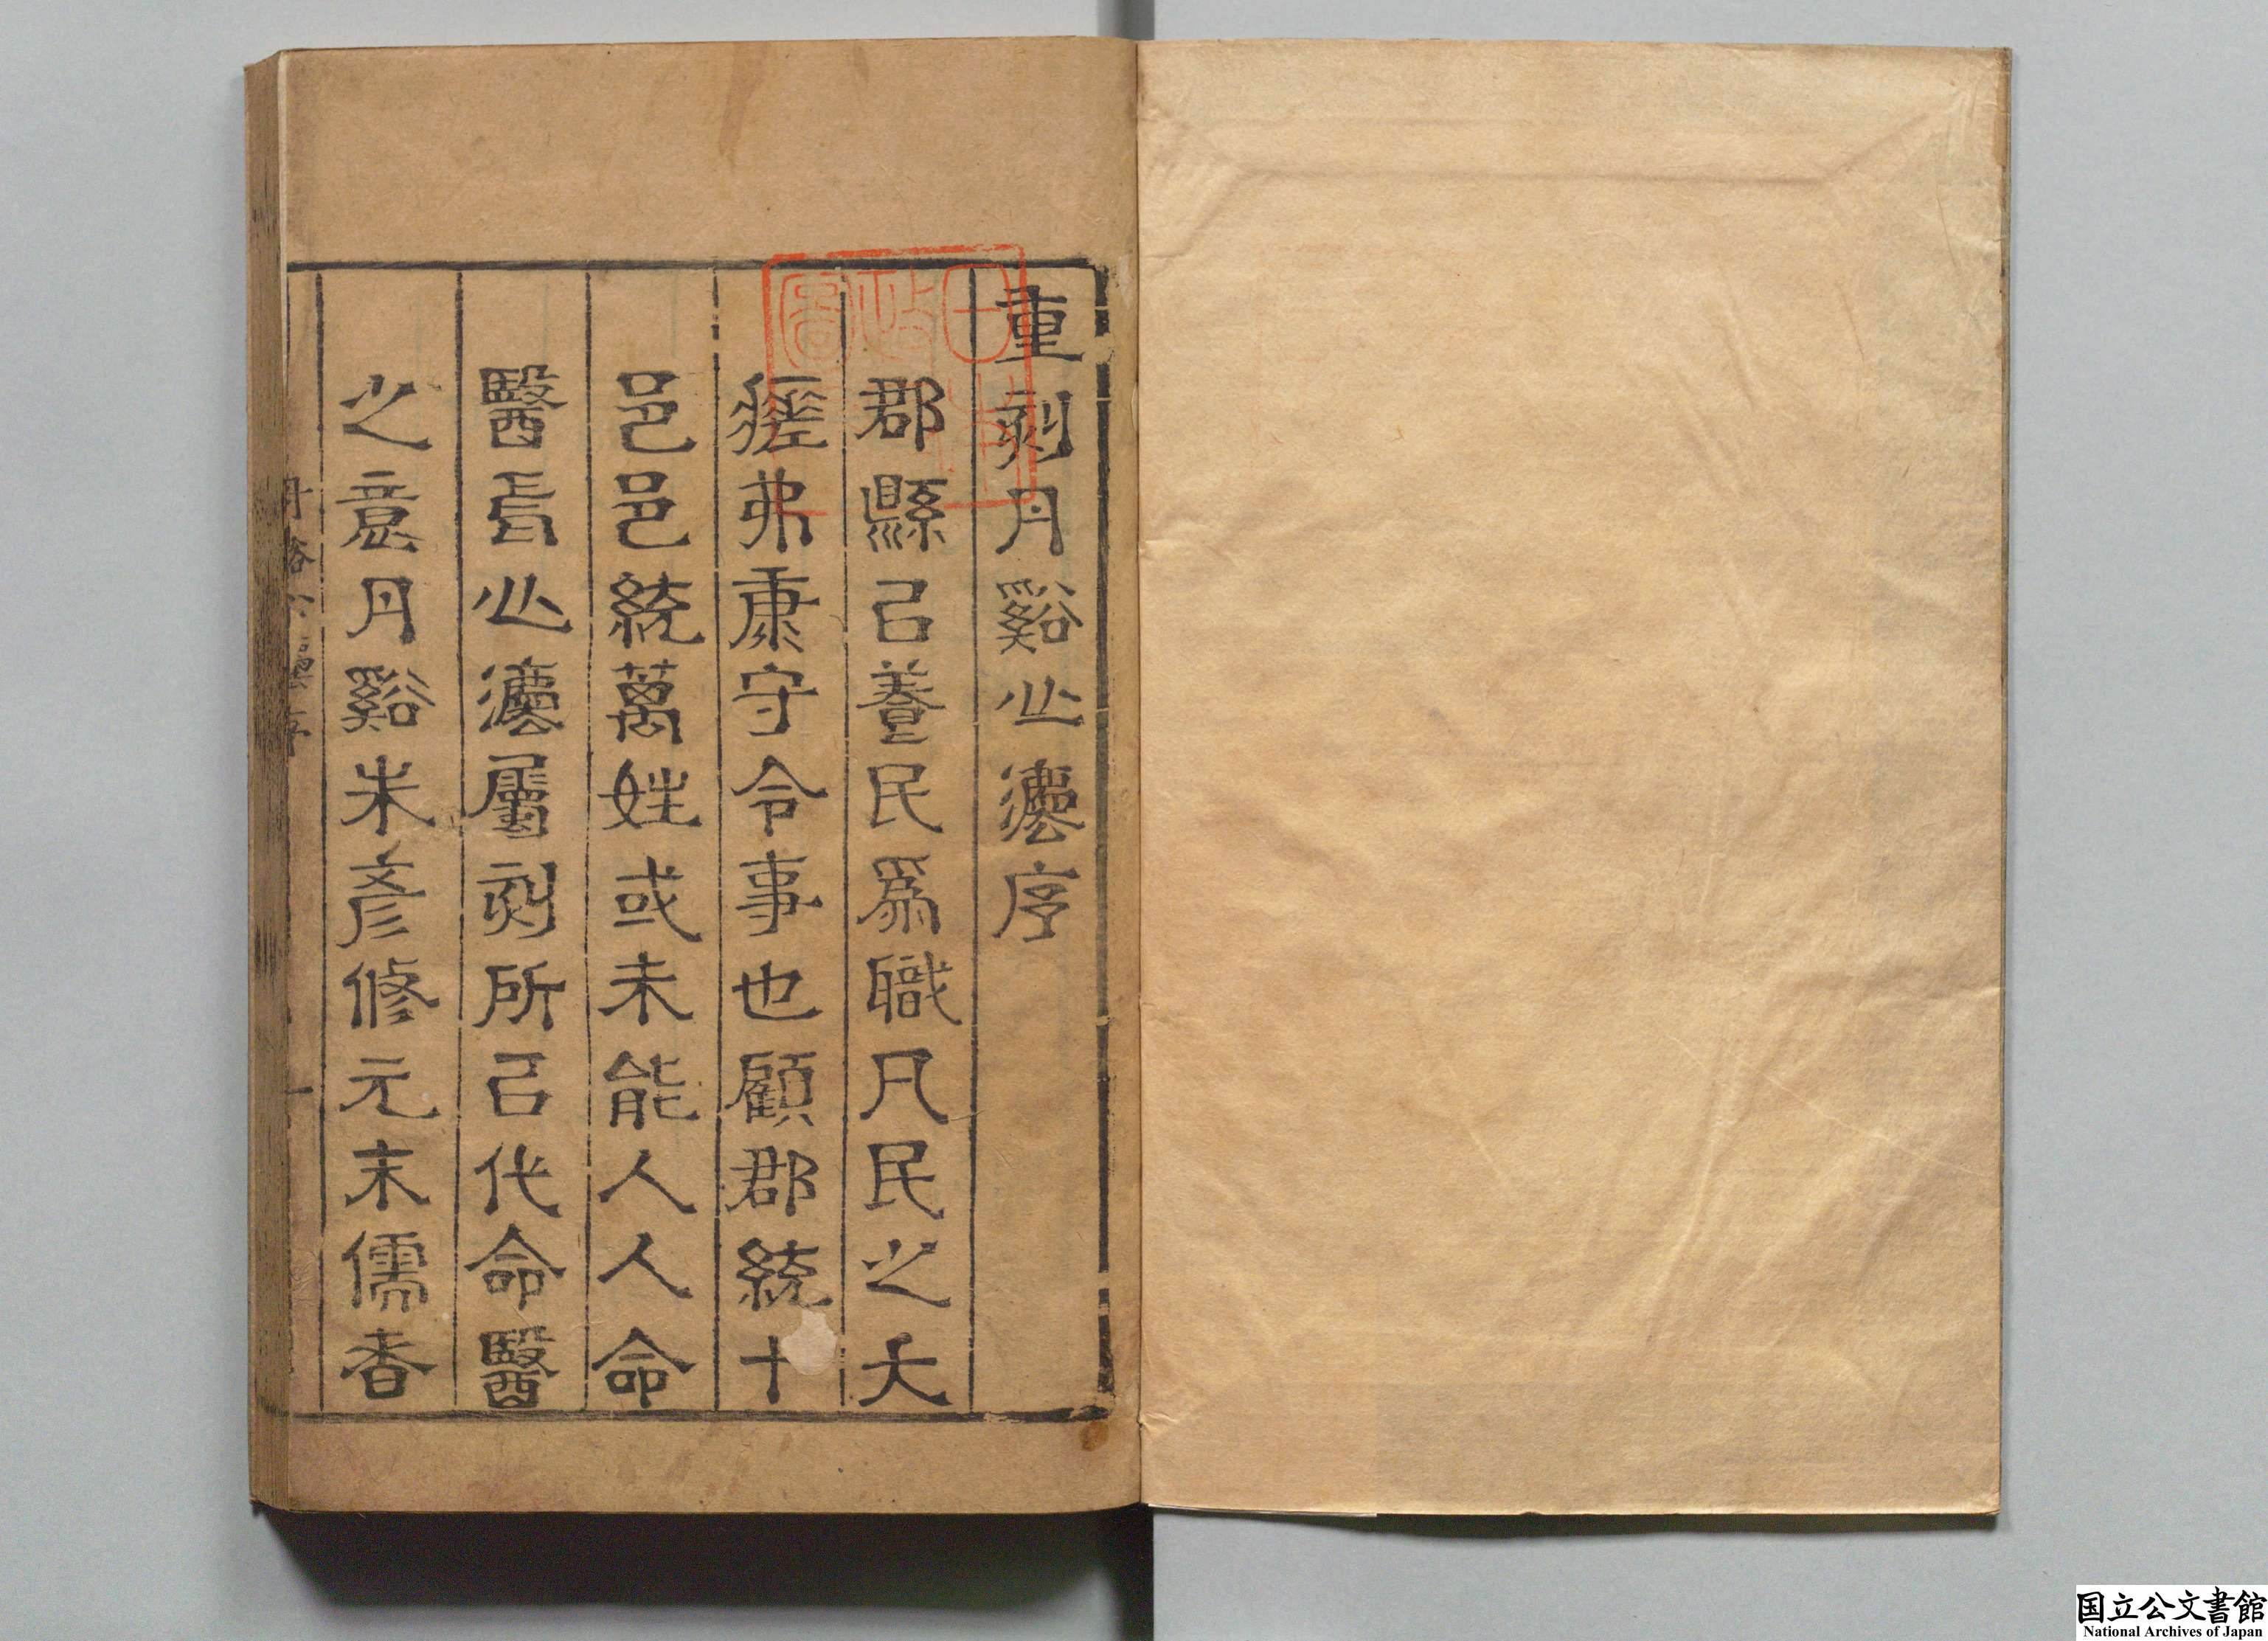 重刻丹谿心灋序
郡縣㠯養民爲職凡民之夭
瘥弗康守令事也顧郡統十
邑邑統萬姓或未能人人命
醫長心灋屬刻所㠯代命醫
之意丹谿朱彥修元末儒者
国立公文書館
National Archives of Japan